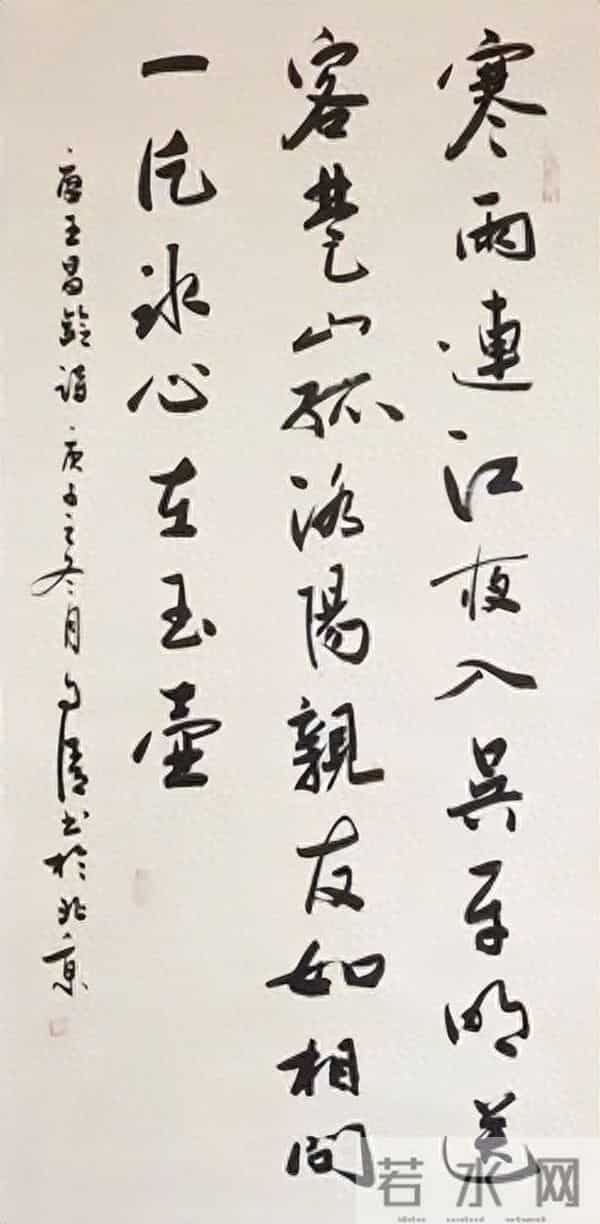 寒雨連江夜入吳平明送
客楚山孤洛陽親友如相問
一片冰心在玉壺
唐王昌齡詩 庚子之冬月 清書於北京
若水网